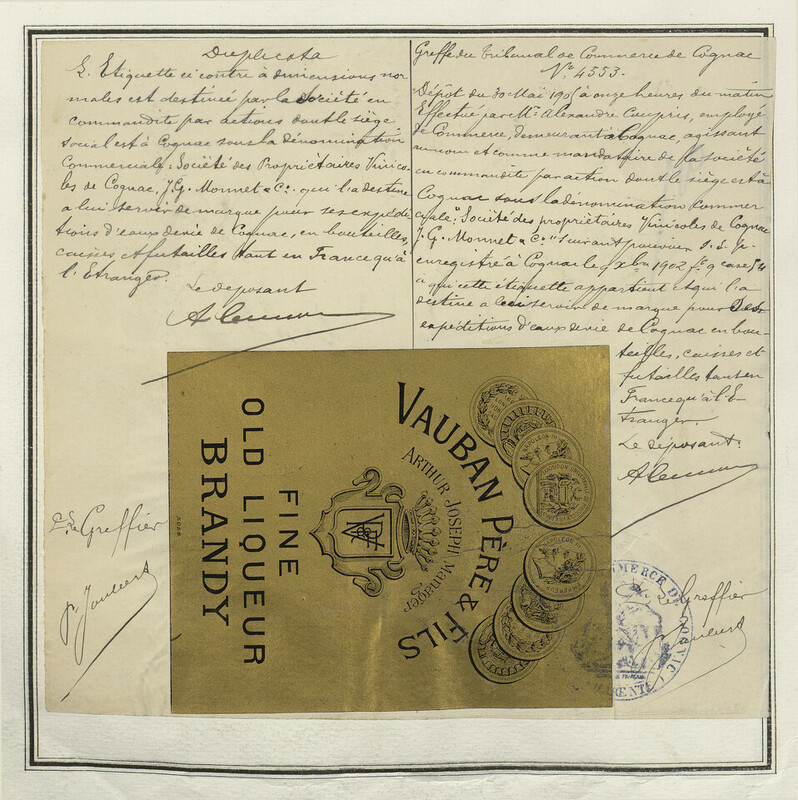 Duplicata
L'Etiquette ci contre à dimensions nor
males est destinée par la Société en
commandite par actions dont le siège
social est à Cognac sous la dénomination
Commerciale: Société des Propriétaires Vinico-
les de Cognac, J.G. Monnet & Cie. qui l'a destine
a lui servir de marque pour ses expédi
tions d'eaux de vie de Cognac, en bouteilles,
caisses et futailles tant en France qu'à
l'Etranger.
Le deposant
Greffe du Tribunal de Commerce de Cognac
No. 4553.
Dépôt du 30 Mai à onze heures du matin
Effectué par Mr. Alexandre employé
de Commerce, demeurant à Cognac, agissant
au nom et comme mandataire de la société
en commandite par action dont le siège est à
Cognac sous la dénomination Commer
ciale: "Société des propriétaires Vinicoles de Cognac
J.G. Monnet & Co" suivant pouvoir s.s.p.
enregistré à Cognac le 9 Xbre 1902 fo 9 case
à qui cette étiquette appartient et qui l'a
destine a lui servir de marque pour
expéditions d'eaux de vie de Cognac en bou-
teilles, caisses et
futailles tant en
France qu'à l'E
tranger.
Le déposant.
VAUBAN PÈRE & FILS
ARTHUR JOSEPH, Manager
FINE
OLD LIQUEUR
BRANDY
Le Greffier
Le Greffier
COMMERCE DE COGNAC
CHARENTE